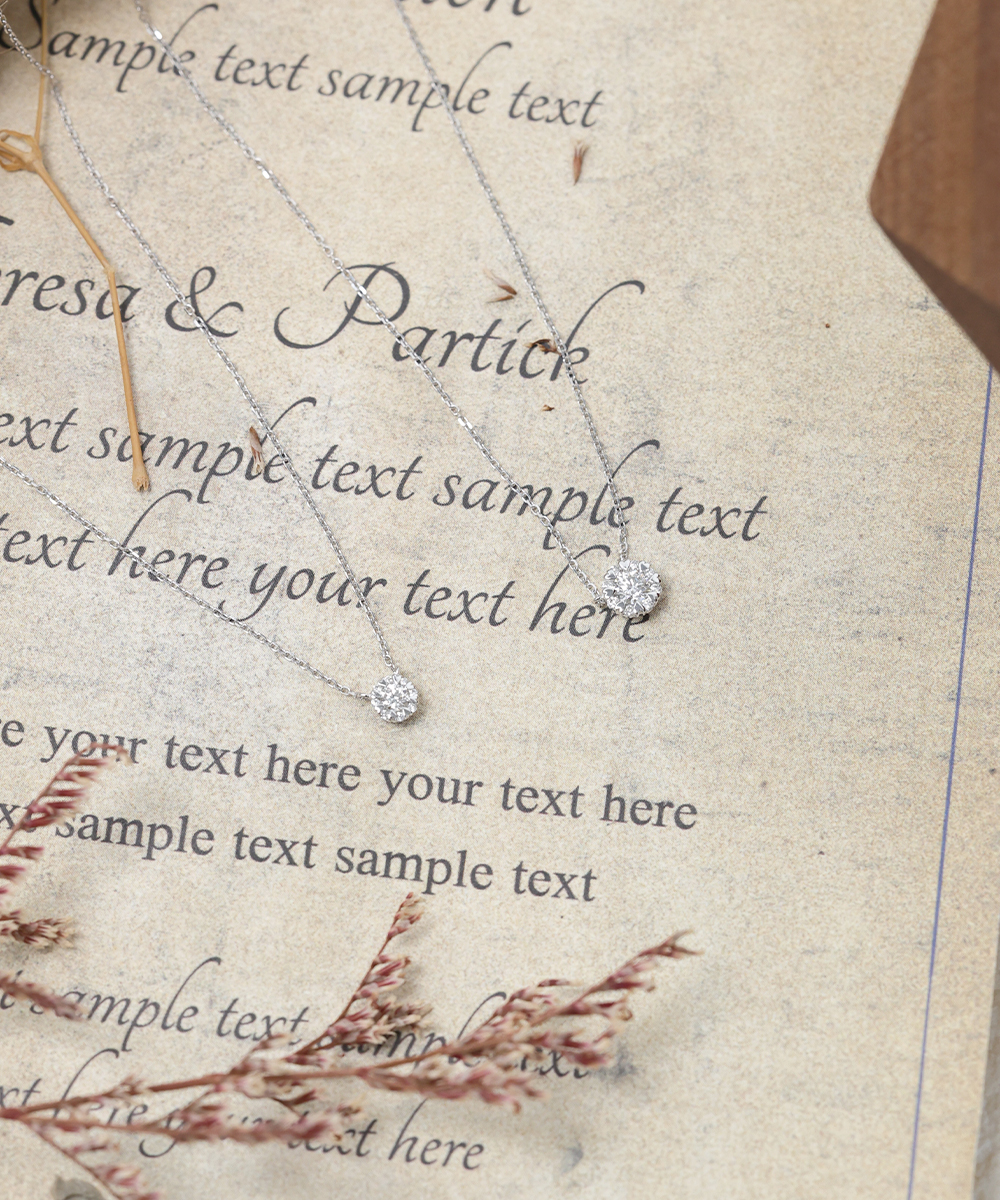 Sample text sample text
eresa & Partick
ext sample text sample text
text here your text here
re your text here your text here
xt sample text sample text
t sample text sample text
xt here your text here